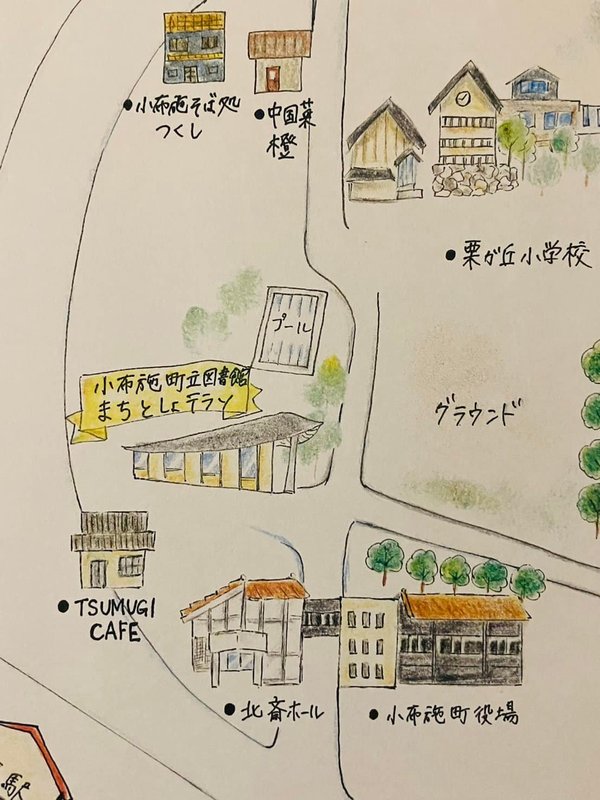 ●小布施そば処
つくし
●中国菜
橙
●栗が丘小学校
プール
小布施町立図書館
まちとしょテラソ
グラウンド
●TSUMUGI
CAFE
●北斎ホール
●小布施町役場
駅